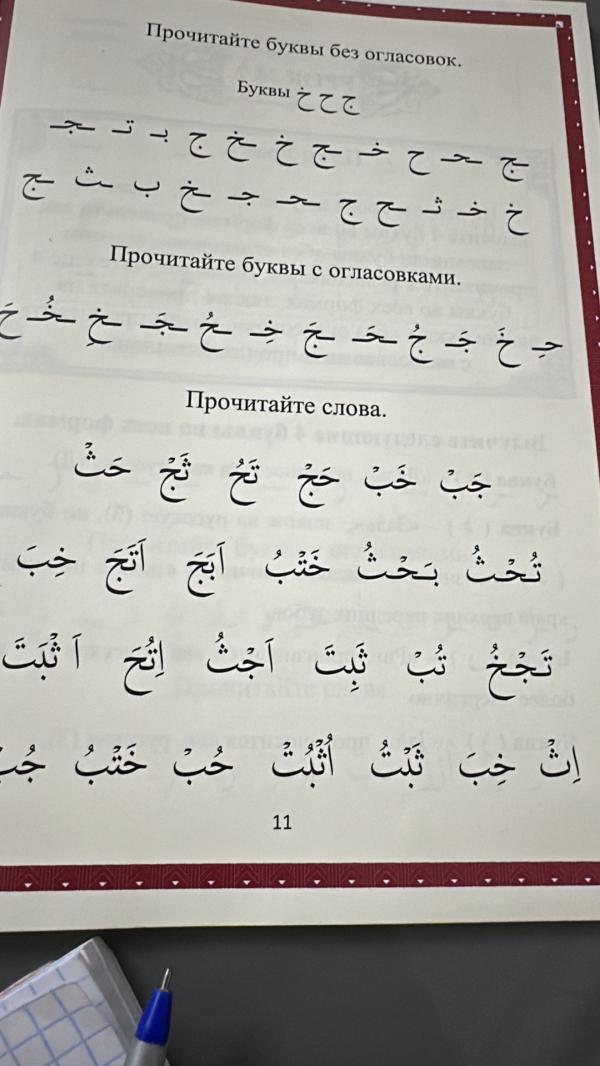 Прочитайте буквы без огласовок.
Буквы ج ح خ
ـج ـحـ ح خـ ـج خ ـخ ج بـ تـ ـجـ
خ خـ ثـ ـح ج ـحـ جـ ـخ ب ـث ـج
Прочитайте буквы с огласовками.
حِـ خَ جَـ جُ ـحَـ ـجَ خِـ ـحُ ـجَـ ـخِ ـخُـ
Прочитайте слова.
جَبْ خَبْ حَجْ تَحُ ثَجْ حَثْ
تُحْثُ بَحْثُ خَتْبُ اَبَجَ اَتَجَ خِبَ
تَجْخُ تُبْ ثَبِتَ اَجْثُ اِتُحَ اَثْبَتَ
اِثْ خِبَ ثَبْتُ اُثْبُتْ حُبْ خَتْبُ
11